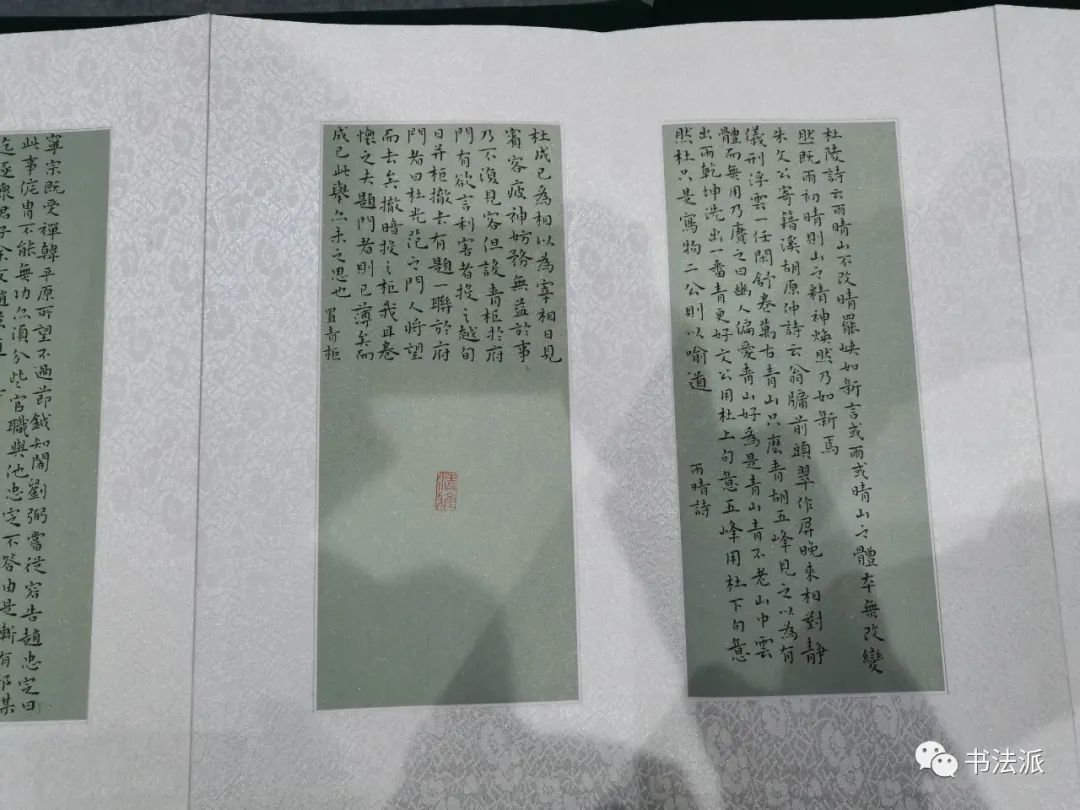 杜陵詩云雨晴山不改晴罷峽如新言或雨或晴山之體本無改變
然既雨初晴則山之精神煥然乃如新焉
朱文公寄籍溪胡原仲詩云翁牖前頭翠作屏晚來相對靜
儀刑浮雲一任閑舒卷萬古青山只麽青胡五峰見之以為有
體而無用乃賡之曰幽人偏愛青山好為是青山青不老山中雲
出雨乾坤洗出一番青更好文公用杜上句意五峰用杜下句意
然杜只是寫物二公則以喻道
雨晴詩
杜成已為相以為宰相日見
賓客疲神妨務無益於事
乃不復見客但設青柜於府
門有欲言利害者投之越旬
日并柜撤去有題一聯於府
門者曰杜光范之門人將望
而去矣撤暗投之柜我且卷
懷之夫題門者則已薄矣而
成已此舉亦未之思也
置青柜
寧宗既受禪韓平原所望不過節鉞知閣劉弼嘗從容告趙忠定曰
此事侂胄不能無功亦須分些官職與他忠定不答由是漸有邪某
迄逐衆君子余友趙
书法派